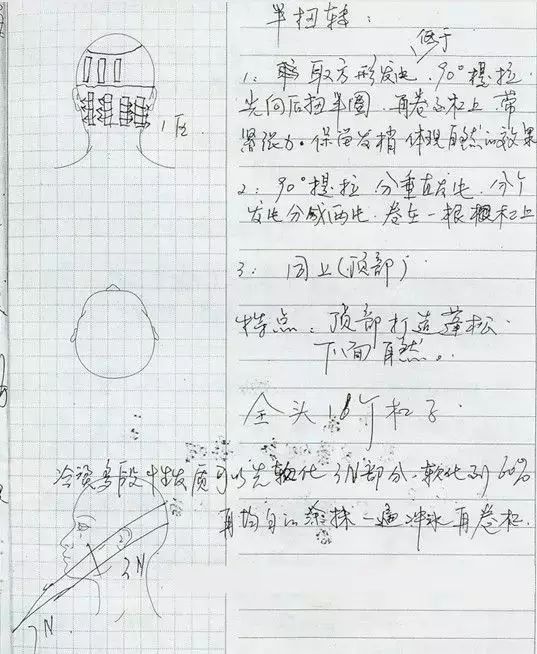 半扭转：
修于
1： 取方形发片、90°提拉.
先向后扭半圈．再卷到杠上 带
紧张力．保留发梢 体现自然的效果
1区
2：90°提拉 分垂直发片．分个
发片分成两片．卷在一根杠上
3： 同上(顶部)
特点：顶部打造蓬松.
下面自然。
全头18个杠子.
冷烫 中性发质可以先软化 3N部分．软化到60%
再均匀的涂抹一遍冲水再卷杠.
2
3N
7N